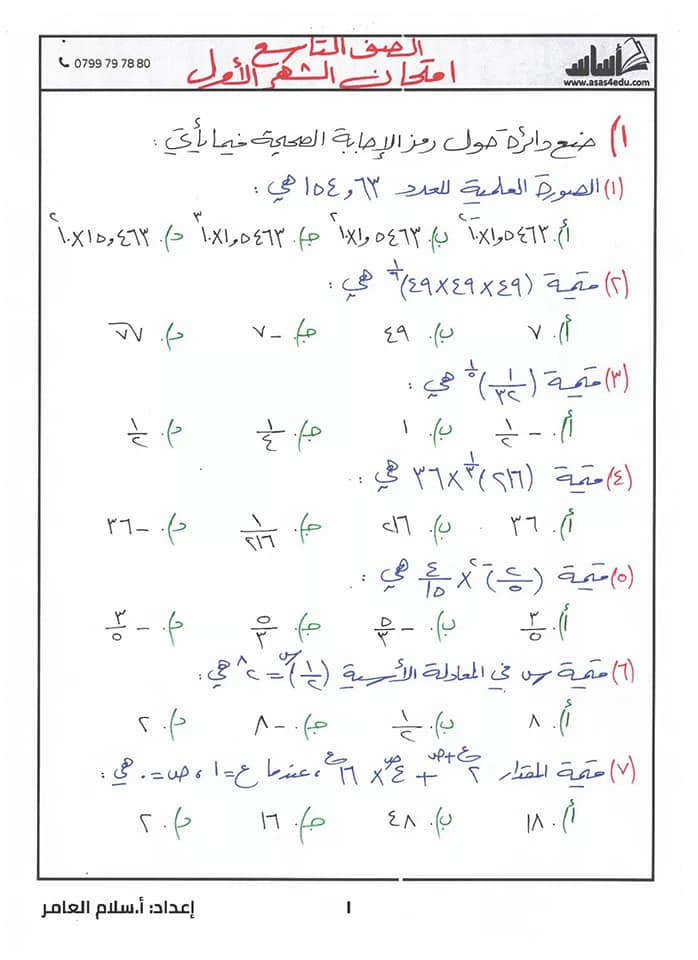 الصف التاسع
امتحان الشهر الأول
0799 79 78 80
أساس
www.asas4edu.com
١) ضع دائرة حول رمز الإجابة الصحيحة فيما يأتي :
(١) الصورة العلمية للعدد ١٥٤,٦٣ هي :
أ. ١,٥٤٦٣×١٠⁻² ب). ١,٥٤٦٣×١٠² ج). ١,٥٤٦٣×١٠³ د). ١٥,٤٦٣×١٠²
(٢) قيمة (٤٩×٤٩×٤٩)^(١/٦) هي :
أ). ٧ ب). ٤٩ ج). -٧ د). √٧
(٣) قيمة (١/٣٢)^(١/٥) هي :
أ). -١/٢ ب). ١ ج). ١/٤ د). ١/٢
(٤) قيمة (٢١٦)^(١/٣)×٣٦ هي :
أ). ٣٦ ب). ٢١٦ ج). ١/٢١٦ د). -٣٦
(٥) قيمة (٢/٥)⁻²×٤/١٥ هي :
أ). ٣/٥ ب). -٥/٣ ج). ٥/٣ د). -٣/٥
(٦) قيمة س في المعادلة الأسية (١/٢)^س = ٢^٨ هي :
أ). ٨ ب). ١/٢ ج). -٨ د). ٢
(٧) قيمة المقدار ٢^(ع+ص) + ٤^ص × ١٦^ع ، عندما ع=١ ، ص=٠ هي :
أ). ١٨ ب). ٤٨ ج). ١٦ د). ٢
١
إعداد: أ.سلام العامر